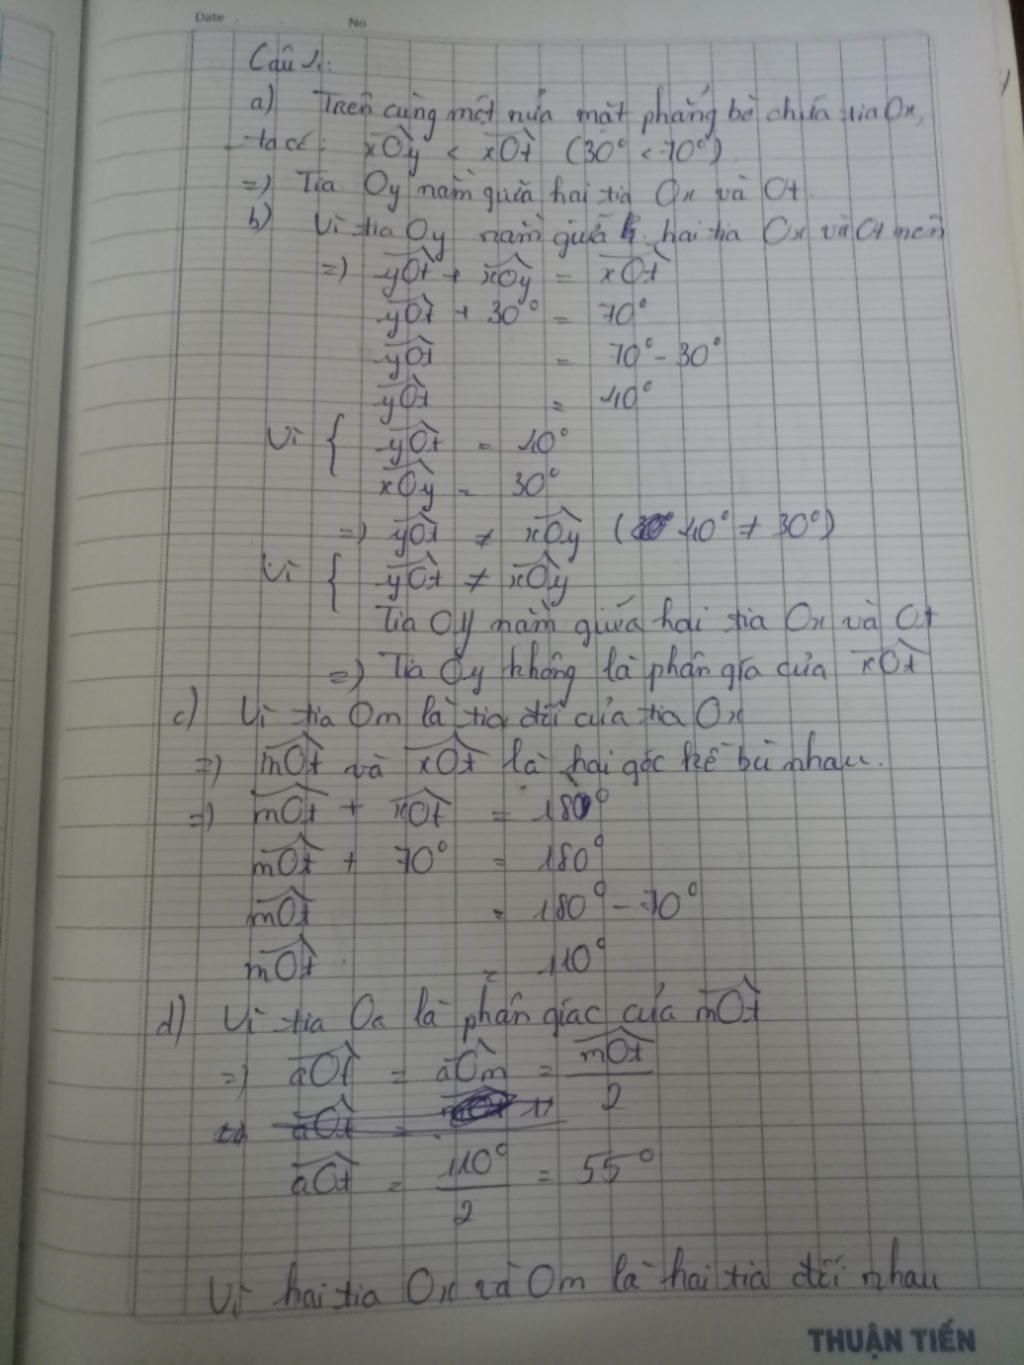 Date No
Câu 1:
a) Trên cùng một nửa mặt phẳng bờ chứa tia Ox,
ta có: xOy < xOt (30° < 70°)
=) Tia Oy nằm giữa hai tia Ox và Ot.
b) Vì tia Oy nằm giữa hai tia Ox và Ot nên
=) yOt + xOy = xOt
yOt + 30° = 70°
yOt = 70° - 30°
yOt = 40°
Vì { yOt = 40°
xOy = 30°
=) yOt ≠ xOy (40° ≠ 30°)
Vì { yOt ≠ xOy
Tia Oy nằm giữa hai tia Ox và Ot
=) Tia Oy không là phân gía của xOt
c) Vì tia Om là tia đối của tia Ox
=) mOt và xOt là hai góc kề bù nhau.
=) mOt + xOt = 180°
mOt + 70° = 180°
mOt = 180° - 70°
mOt = 110°
d) Vì tia Oa là phân giác của mOt
=) aOt = aOm = mOt/2
aOt = 110°/2 = 55°
Vì hai tia Ox và Om là hai tia đối nhau
THUẬN TIẾN